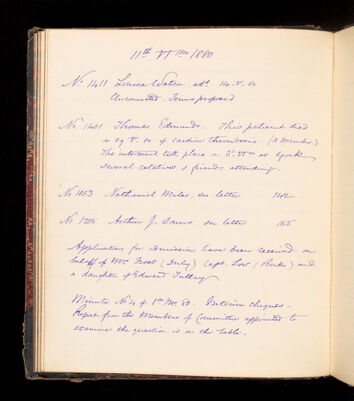 11th VI mo 1880
No 1411 Louisa Watson. adm. 14. V. 80
Unconnected. Terms proposed
No 1401 Thomas Edmunds. This patient died
on 29. V. 80 of cardiac thrombosis. (a Member.)
The interment took place on at York
several relatives & friends attending.
No 1053 Nathaniel Miles, see letter 142
No 1255 Arthur J. see letter 155
Applications for admission have been received on
behalf of Mrs Frost (Derby) Capt. Low (Berks) and
a daughter of Edward
Minute No of 1st Mo. 80. Interim cheques -
Report from the Members of Committee appointed to
examine the question is on the table.